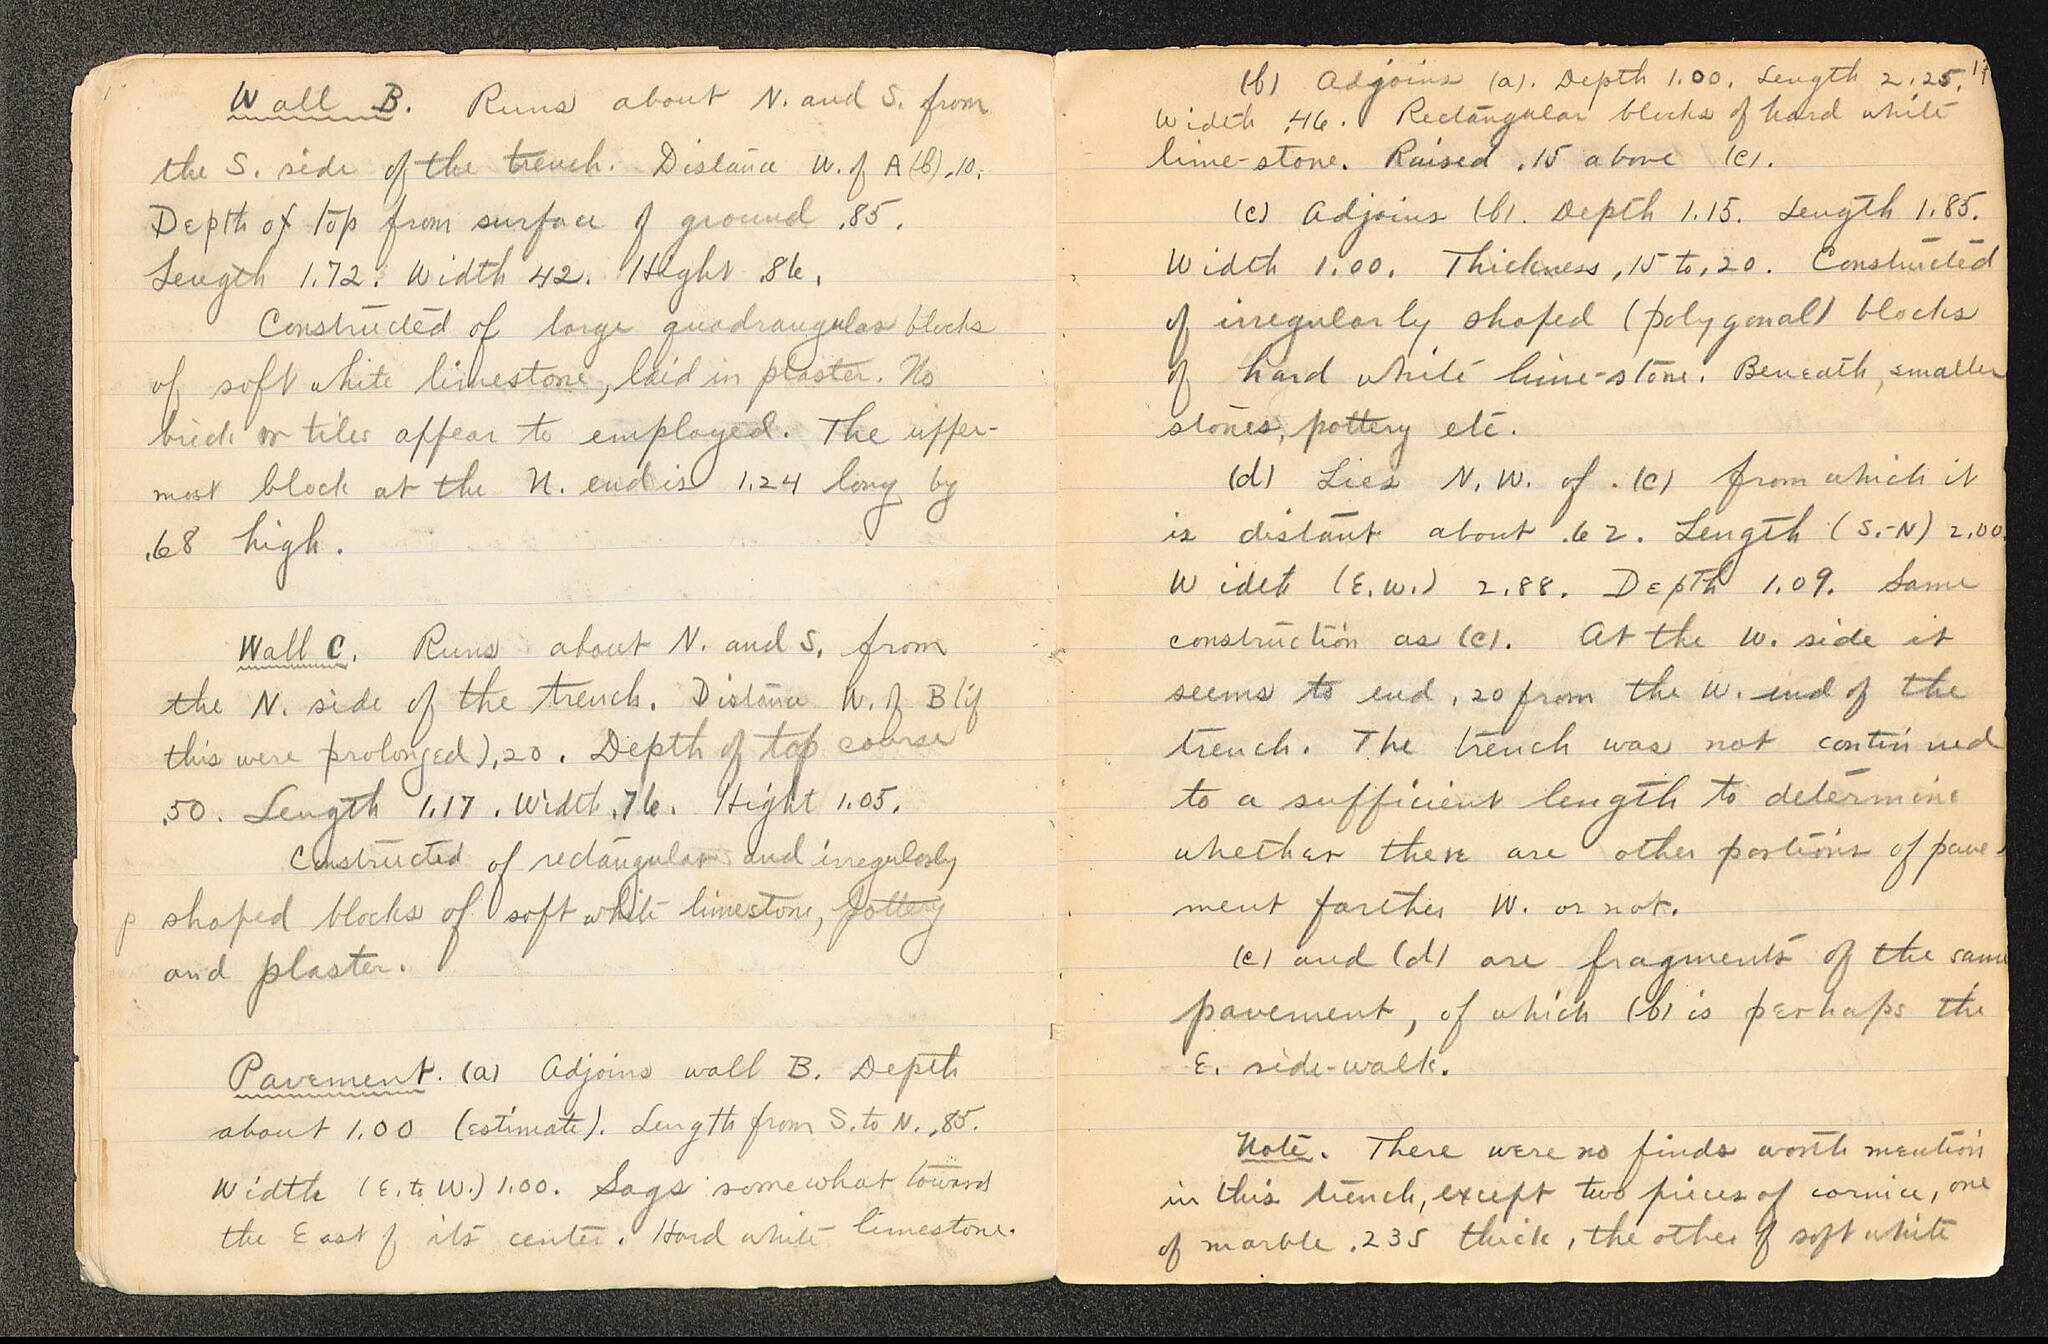 Wall B. Runs about N. and S. from
the S. side of the trench. Distance W. of A (b) .10.
Depth of top from surface of ground .85.
Length 1.72. Width 42. Hight .86.
Constructed of large quadrangular blocks
of soft white limestone, laid in plaster. No
brick or tiles appear to employed. The upper-
most block at the N. end is 1.24 long by
.68 high.
Wall C. Runs about N. and S. from
the N. side of the trench. Distance W. of B (if
this were prolonged) .20. Depth of top course
.50. Length 1.17. Width .76. Hight 1.05.
Constructed of rectangular and irregularly
shaped blocks of soft white limestone, pottery
and plaster.
Pavement. (a) Adjoins wall B. Depth
about 1.00 (estimate). Length from S. to N. .85.
Width (E. to W.) 1.00. Sags somewhat toward
the East of its center. Hard white limestone.
17
(b) Adjoins (a). Depth 1.00. Length 2.25.
Width .46. Rectangular blocks of hard white
lime-stone. Raised .15 above (c).
(c) Adjoins (b). Depth 1.15. Length 1.85.
Width 1.00. Thickness .15 to .20. Constructed
of irregularly shaped (polygonal) blocks
of hard white lime-stone. Beneath, smaller
stones, pottery etc.
(d) Lies N.W. of (c) from which it
is distant about .62. Length (S.-N) 2.00.
Width (E.W.) 2.88. Depth 1.09. Same
construction as (c). At the W. side it
seems to end .20 from the W. end of the
trench. The trench was not continued
to a sufficient length to determine
whether there are other portions of pave-
ment farther W. or not.
(c) and (d) are fragments of the same
pavement, of which (b) is perhaps the
E. side-walk.
Note. There were no finds worth mention
in this trench, except two pieces of cornice, one
of marble .235 thick, the other of soft white